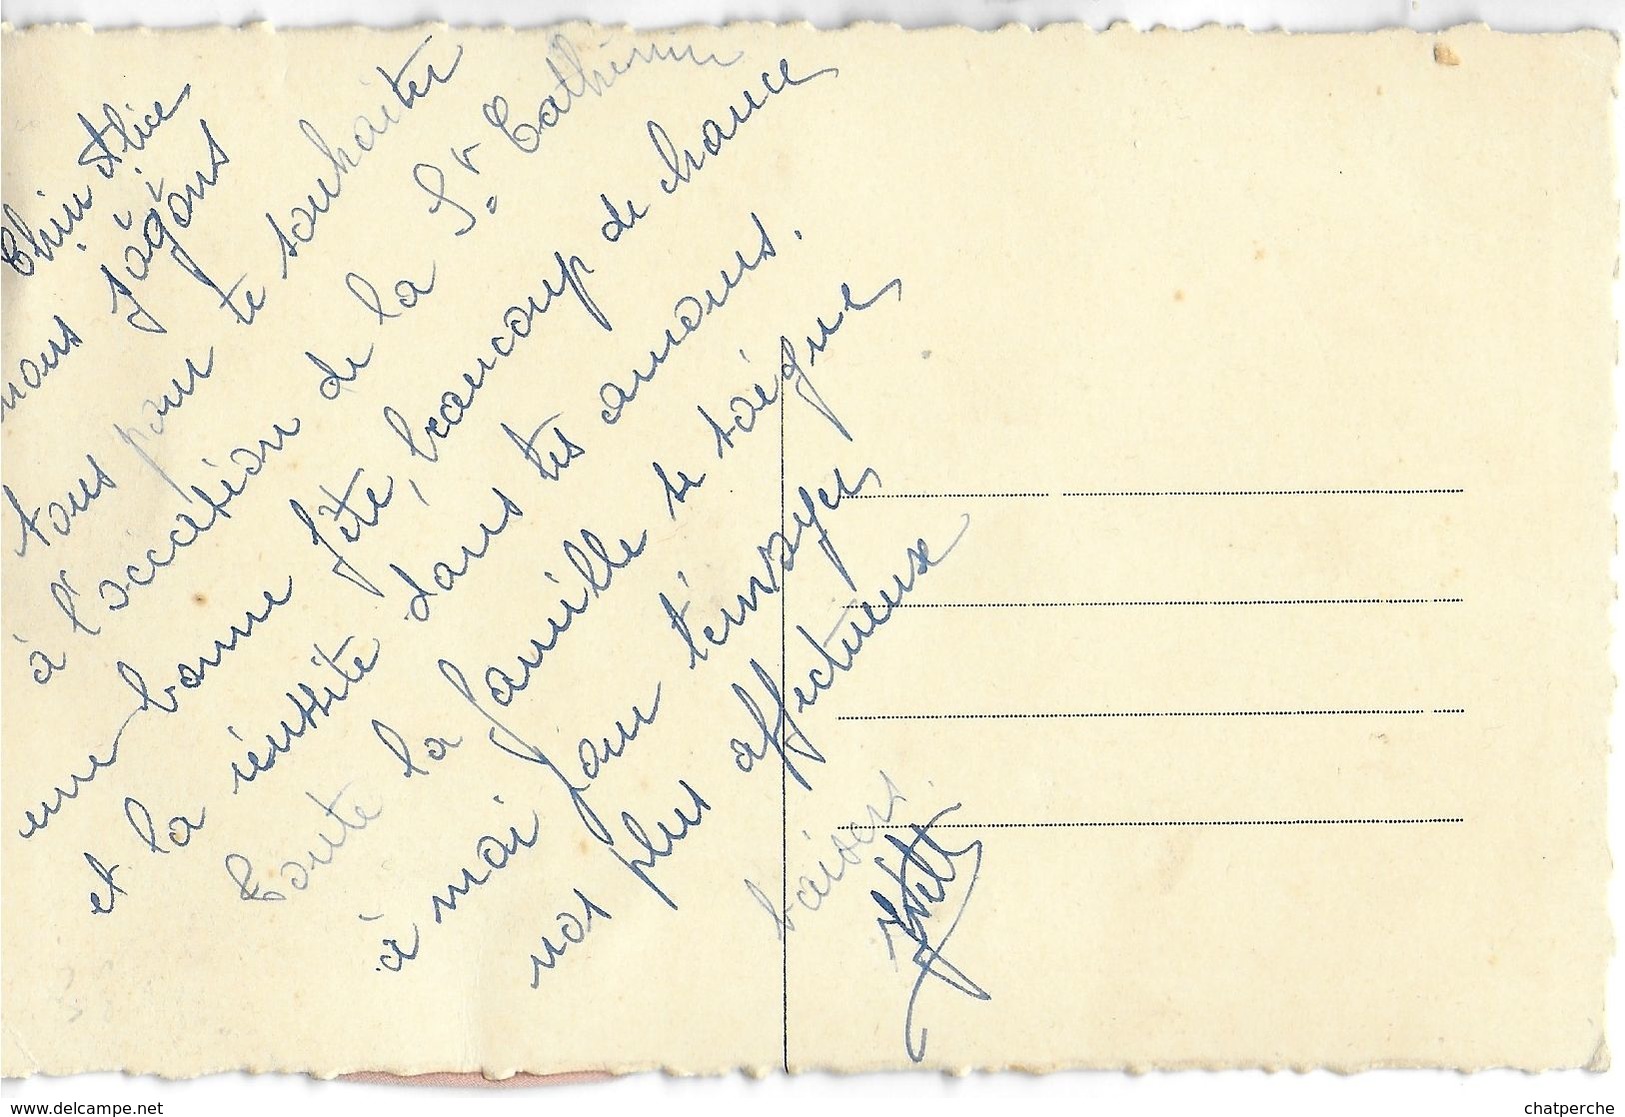 Chère Alice
nous
tous pour te souhaiter
à l'occasion de la Ste Catherine
une bonne fête, beaucoup de chance
et la réussite dans tes amours.
Toute la famille se
à moi pour t'envoyer
nos plus affectueux
baisers.
www.delcampe.net
chatperche